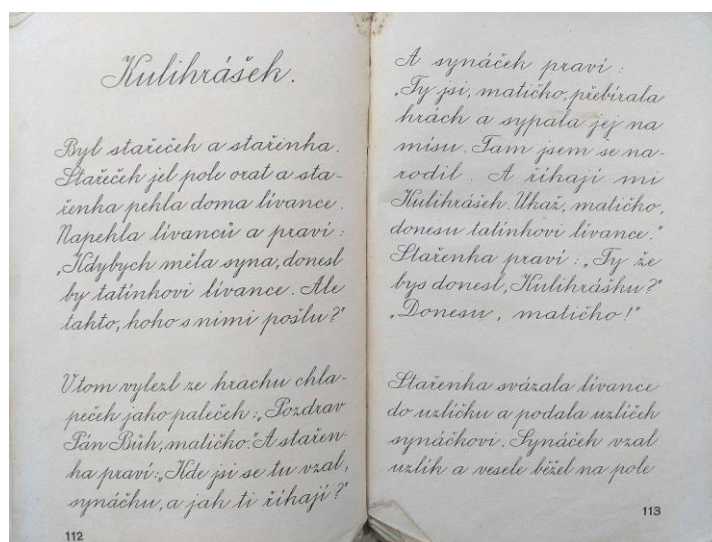 Kulihrášek.
Byl stařeček a stařenka.
Stařeček jel pole orat a sta-
řenka pekla doma lívance.
Napekla lívanců a praví:
„Kdybych měla syna, donesl
by tatínkovi lívance. Ale
takto, koho s nimi pošlu?“
Vtom vylezl ze hrachu chla-
peček jako paleček: „Pozdrav
Pán Bůh, matičko.“ A stařen-
ka praví: „Kde jsi se tu vzal,
synáčku, a jak ti říkají?“
112
A synáček praví:
„Ty jsi, matičko, přebírala
hrách a sypala jej na
mísu. Tam jsem se na-
rodil. A říkají mi
Kulihrášek. Ukaž, matičko,
donesu tatínkovi lívance.“
Stařenka praví: „Ty že
bys donesl, Kulihrášku?“
„Donesu, matičko!“
Stařenka svázala lívance
do uzlíčku a podala uzlíček
synáčkovi. Synáček vzal
uzlík a vesele běžel na pole
113